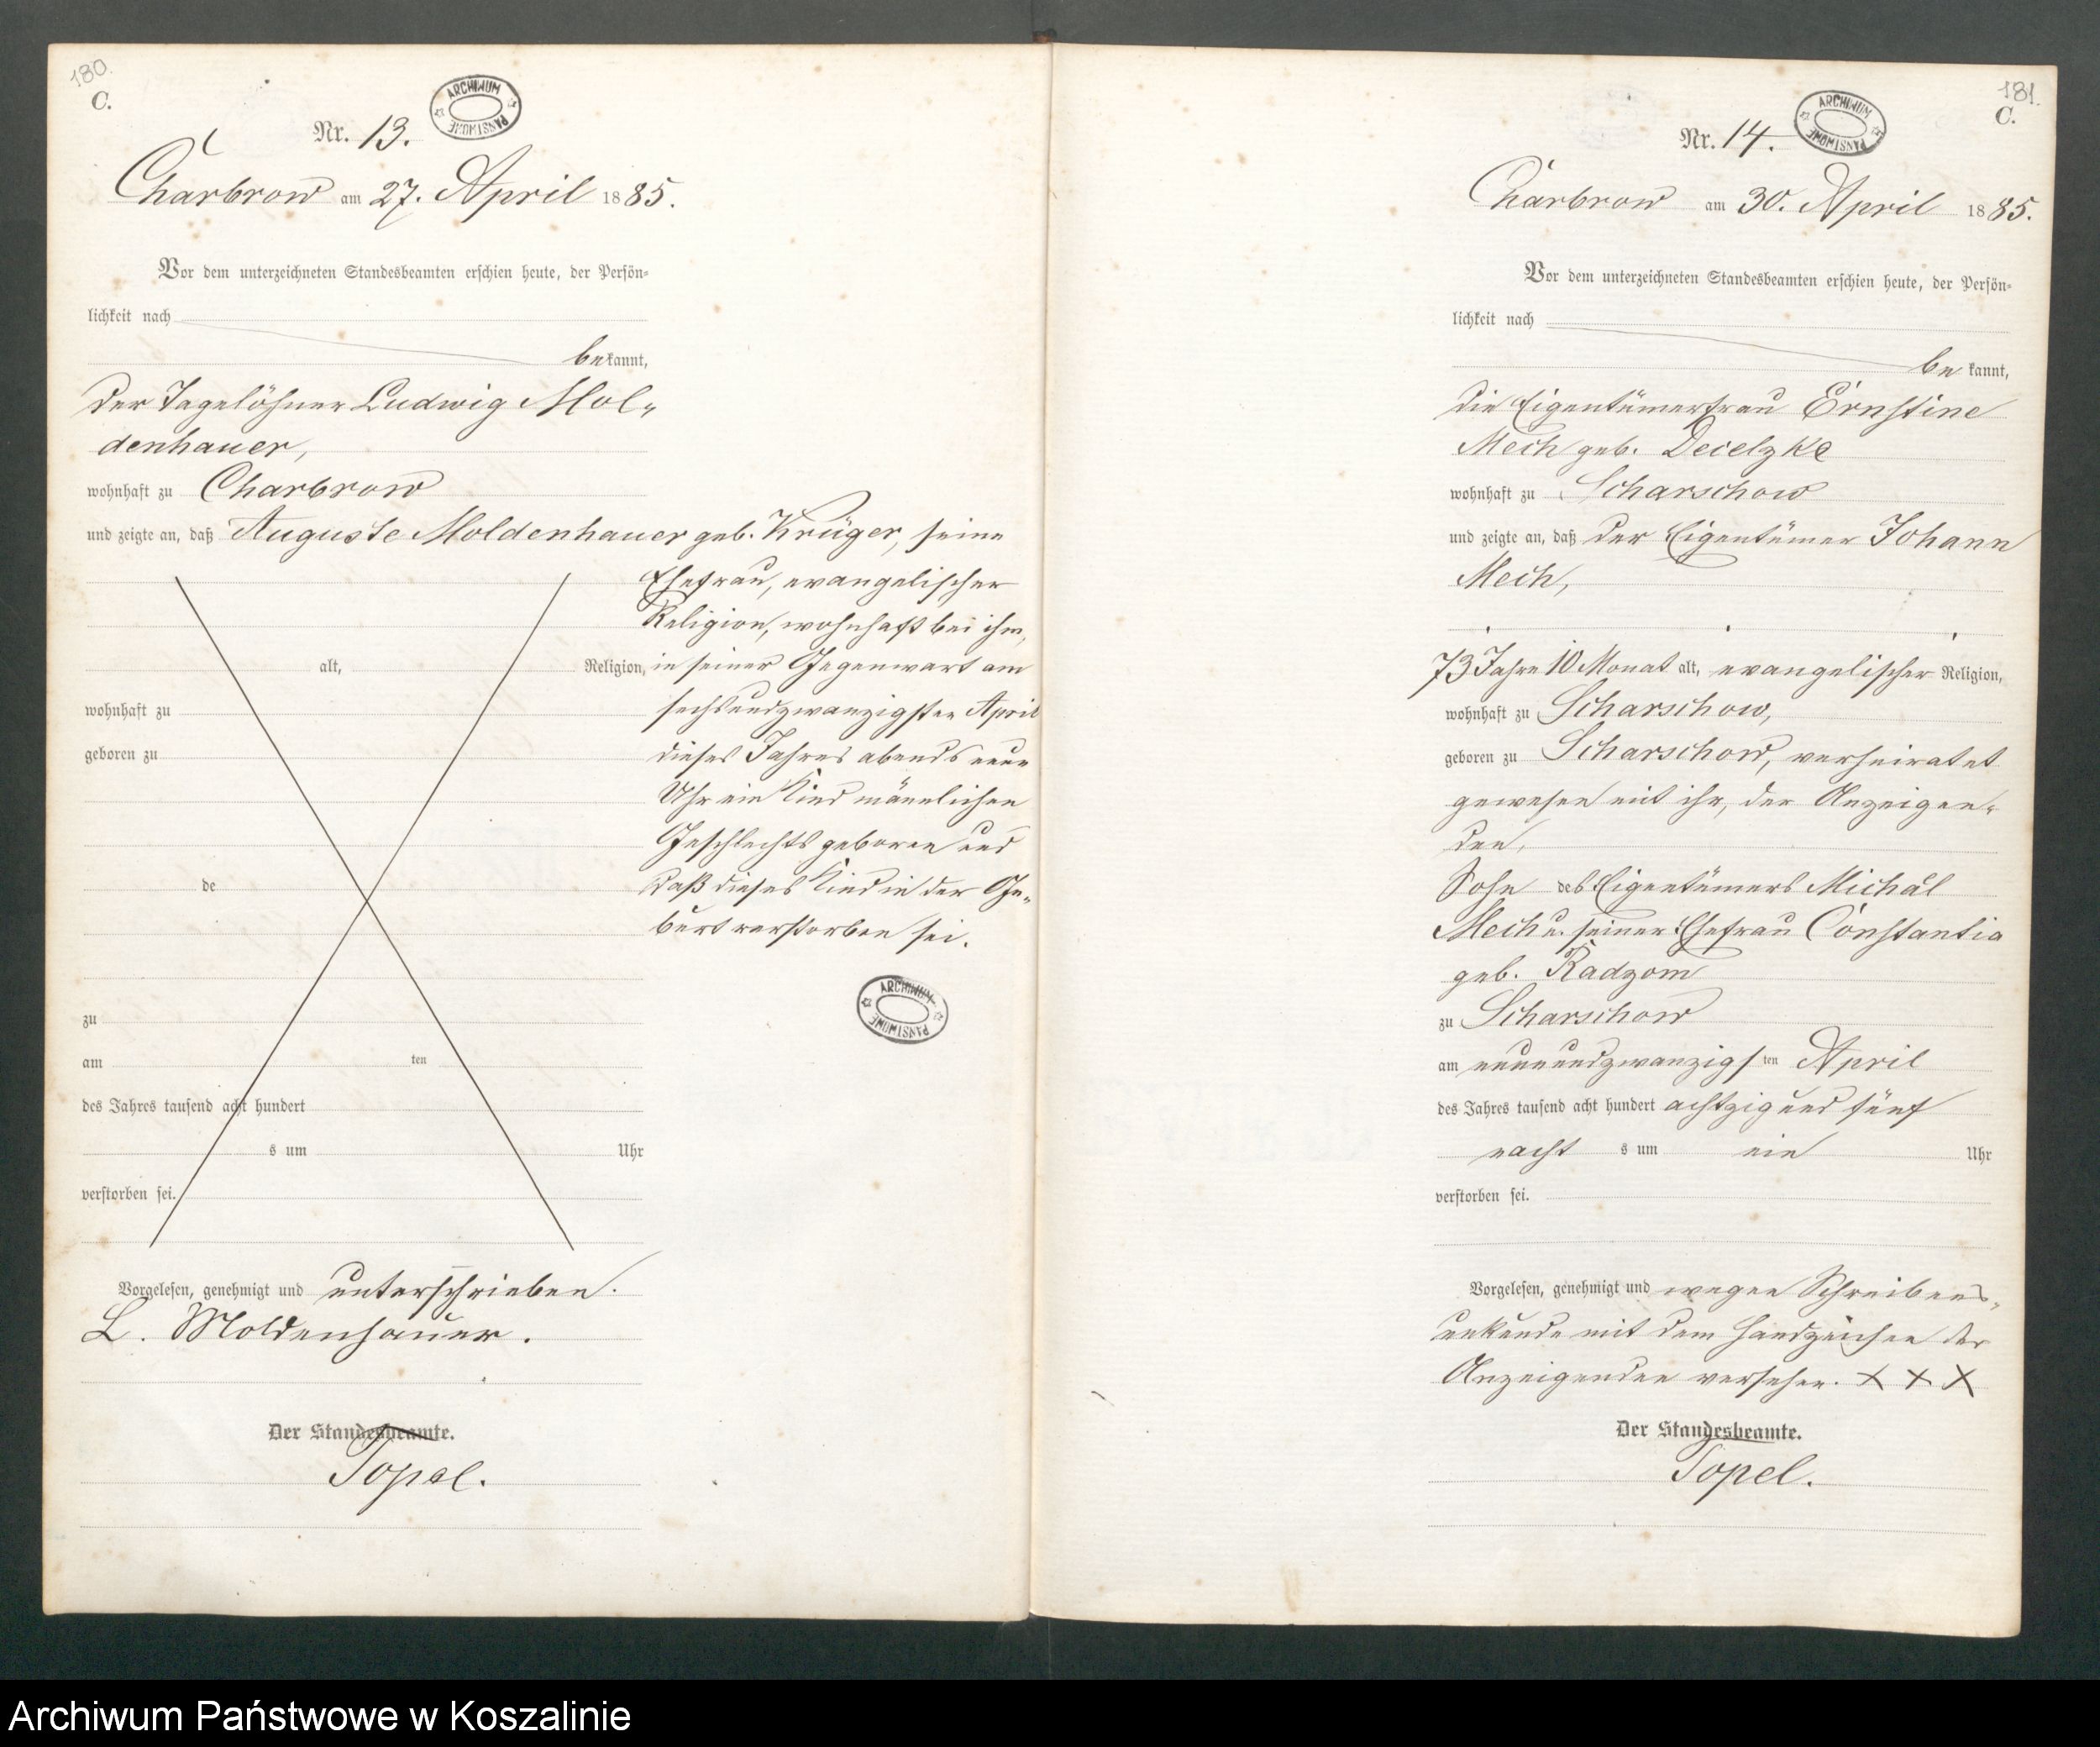 180.
C.
ARCHIWUM PAŃSTWOWE
Nr. 13.
Charbrow am 27. April 1885.
Vor dem unterzeichneten Standesbeamten erschien heute, der Persön-
lichkeit nach
bekannt,
der Tagelöhner Ludwig Mol-
denhauer,
wohnhaft zu Charbrow
und zeigte an, daß Auguste Moldenhauer geb. Krüger, seine
Ehefrau, evangelischer
Religion, wohnhaft bei ihm,
alt, Religion, in seiner Gegenwart am
sechsundzwanzigsten April
wohnhaft zu
dieses Jahres abends neun
geboren zu
Uhr ein Kind männlichen
Geschlechts geboren und
daß dieses Kind in der Ge-
de
burt verstorben sei.
ARCHIWUM PAŃSTWOWE
zu
am ten
des Jahres tausend acht hundert
s um Uhr
verstorben sei.
Vorgelesen, genehmigt und unterschrieben.
L. Moldenhauer.
Der Standesbeamte.
Topel.
181.
C.
ARCHIWUM PAŃSTWOWE
Nr. 14.
Charbrow am 30. April 1885.
Vor dem unterzeichneten Standesbeamten erschien heute, der Persön-
lichkeit nach
bekannt,
die Eigentümerfrau Ernstine
Mech geb.
wohnhaft zu Scharschow
und zeigte an, daß der Eigentümer Johann
Mech,
73 Jahre 10 Monat alt, evangelischer Religion,
wohnhaft zu Scharschow,
geboren zu Scharschow, verheiratet
gewesen mit ihr, der Anzeigen-
den,
Sohn des Eigentümers Michäl
Mech u. seiner Ehefrau Constantia
geb. Radzom
zu Scharschow
am neunundzwanzigsten April
des Jahres tausend acht hundert achtzig und fünf
nachts um ein Uhr
verstorben sei.
Vorgelesen, genehmigt und wegen Schreibens-
unkunde mit dem Handzeichen der
Anzeigenden versehen. X X X
Der Standesbeamte.
Topel.
Archiwum Państwowe w Koszalinie